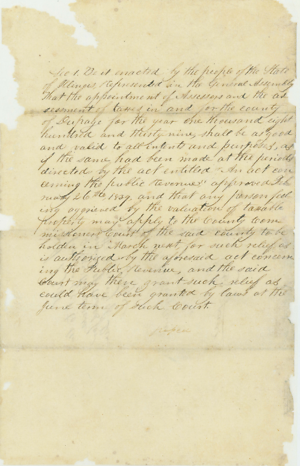 Sec 1. Be it enacted by the people of the State
of Illinois represented in the General Assembly
That the appointment of Assessors and the as
sessment of taxes in and for the county
of Dupage for the year one thousand eight
hundred and thirty nine, shall be as good
and valid to all intents and purposes, as
if the same had been made at the periods
directed by the act entitled "An act con
cerning the public Revenue" approved Feb
ruary 26th 1839, and that any person feel
ing aggrieved by the valuation of taxable
property may apply to the County Com
missioners Court of the said county to be
holden in March next for such relief as
is authorized by the aforesaid act concern
ing the Public Revenue, and the said
Court may there grant such relief as
could have been granted by laws at the
term of such Court